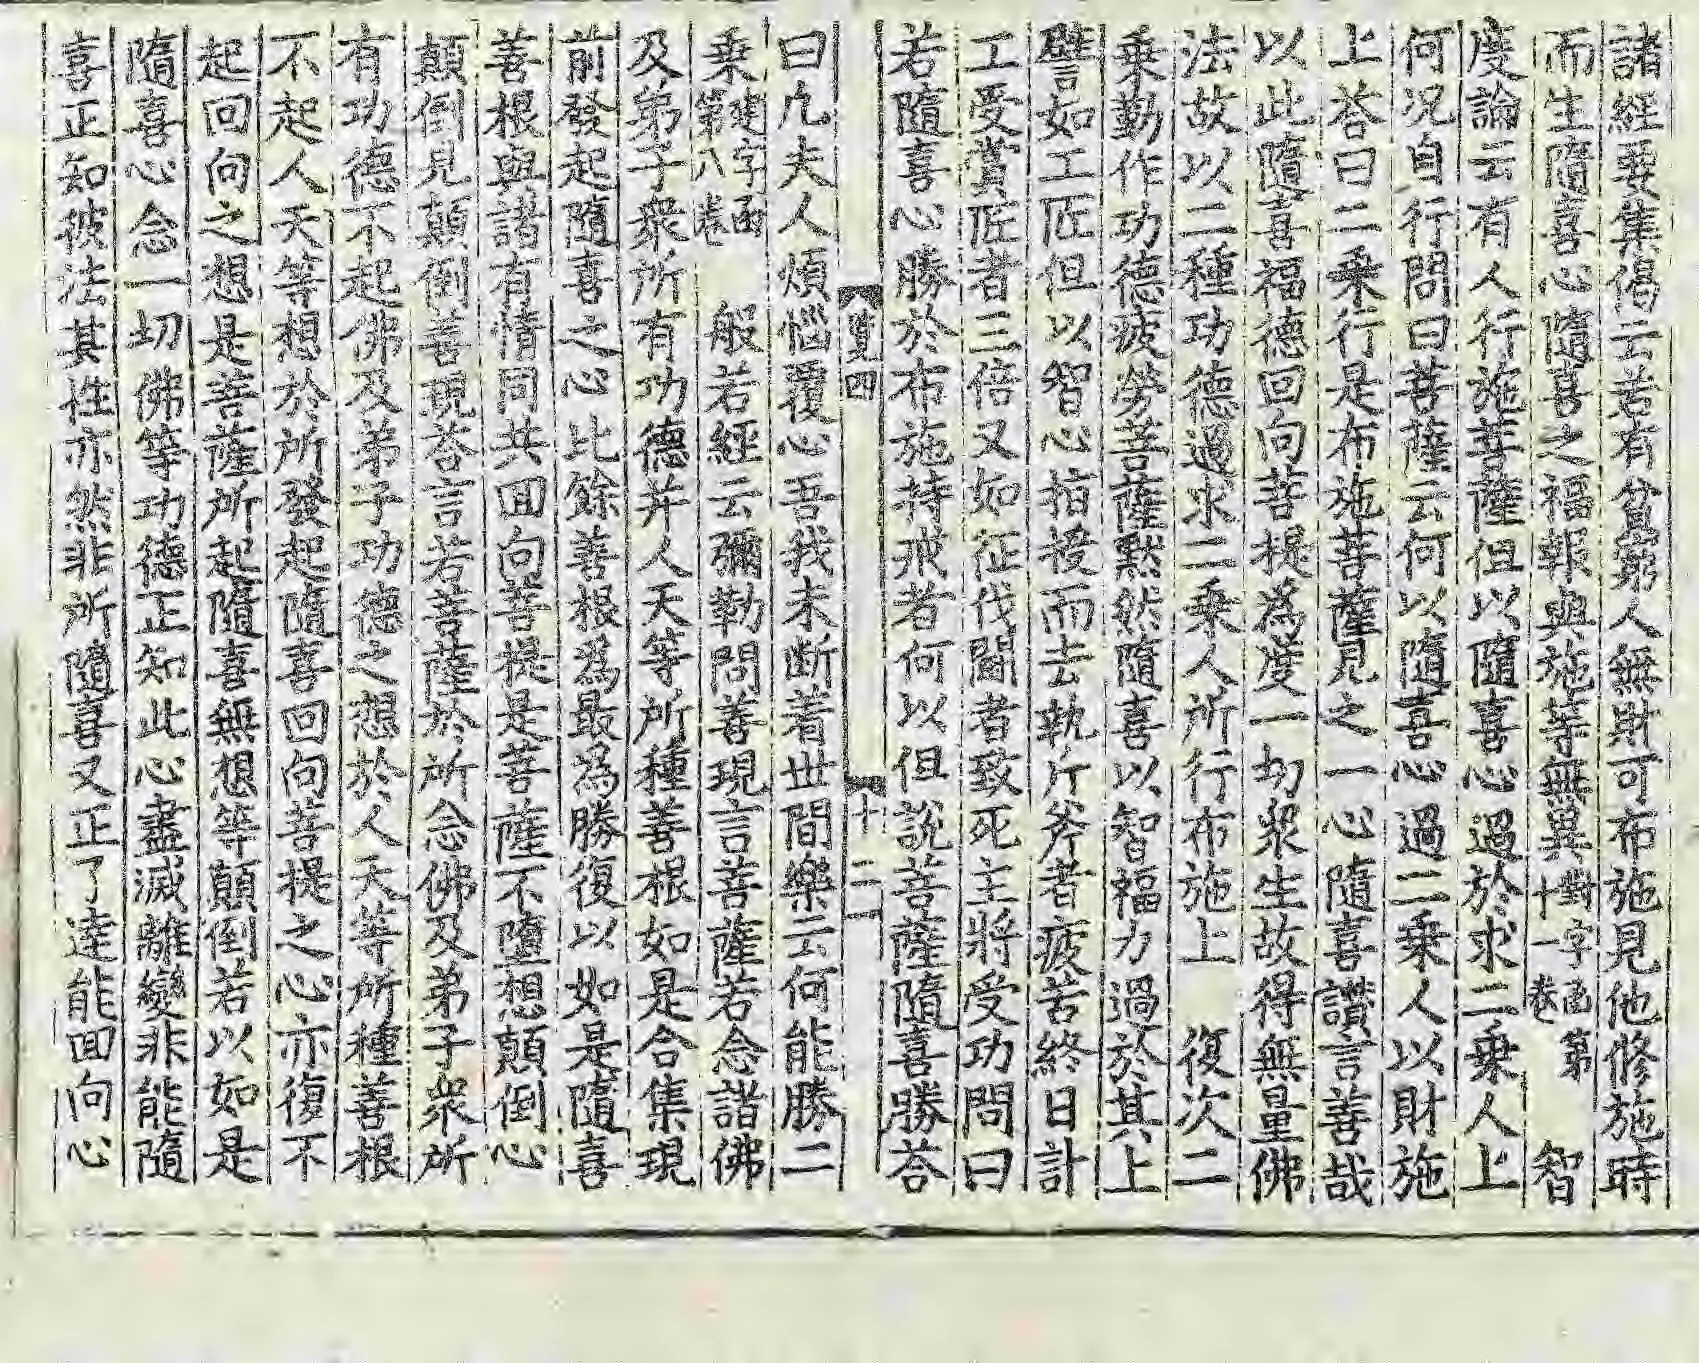 諸經要集偈云若有貧窮人無財可布施見他修施時
而生隨喜心隨喜之福報與施等無異對字函第十一卷 智
度論云有人行施菩薩但以隨喜心過於求二乘人上
何況自行問曰菩薩云何以隨喜心過二乘人以財施
上荅曰二乘行是布施菩薩見之一心隨喜讃言善哉
以此隨喜福德回向菩提為度一切衆生故得無量佛
法故以二種功德過求二乘人所行布施上 復次二
乘勤作功德疲勞菩薩黙然隨喜以智福力過於其上
譬如工匠但以智心指授而去執斤斧者疲苦終日計
工受賞匠者三倍又如征伐鬪者致死主將受功問曰
若隨喜心勝於布施持戒者何以但說菩薩隨喜勝荅
覽四 十二
曰凢夫人煩惱覆心吾我未断着世間樂云何能勝二
乘建字函第八卷 般若經云彌勒問善現言菩薩若念諸佛
及弟子衆所有功德并人天等所種善根如是合集現
前發起隨喜之心比餘善根為最為勝復以如是隨喜
善根與諸有情同共回向菩提是菩薩不墮想顛倒心
顛倒見顛倒善現荅言若菩薩於所念佛及弟子衆所
有功德不起佛及弟子功德之想於人天等所種善根
不起人天等想於所發起隨喜回向菩提之心亦復不
起回向之想是菩薩所起隨喜無想等顛倒若以如是
隨喜心念一切佛等功德正知此心盡滅離變非能隨
喜正知彼法其性亦然非所隨喜又正了達能回向心